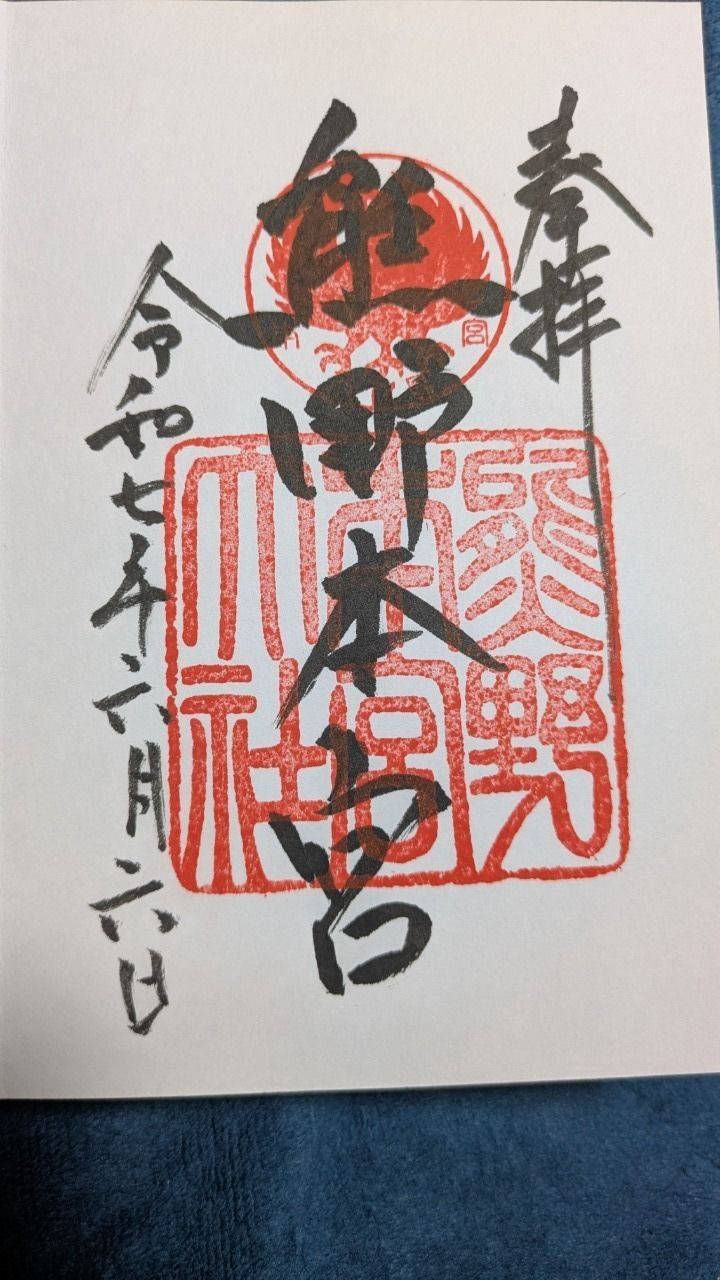 奉拝
熊野本宮
熊野
本宮
大社
令和七年六月六日